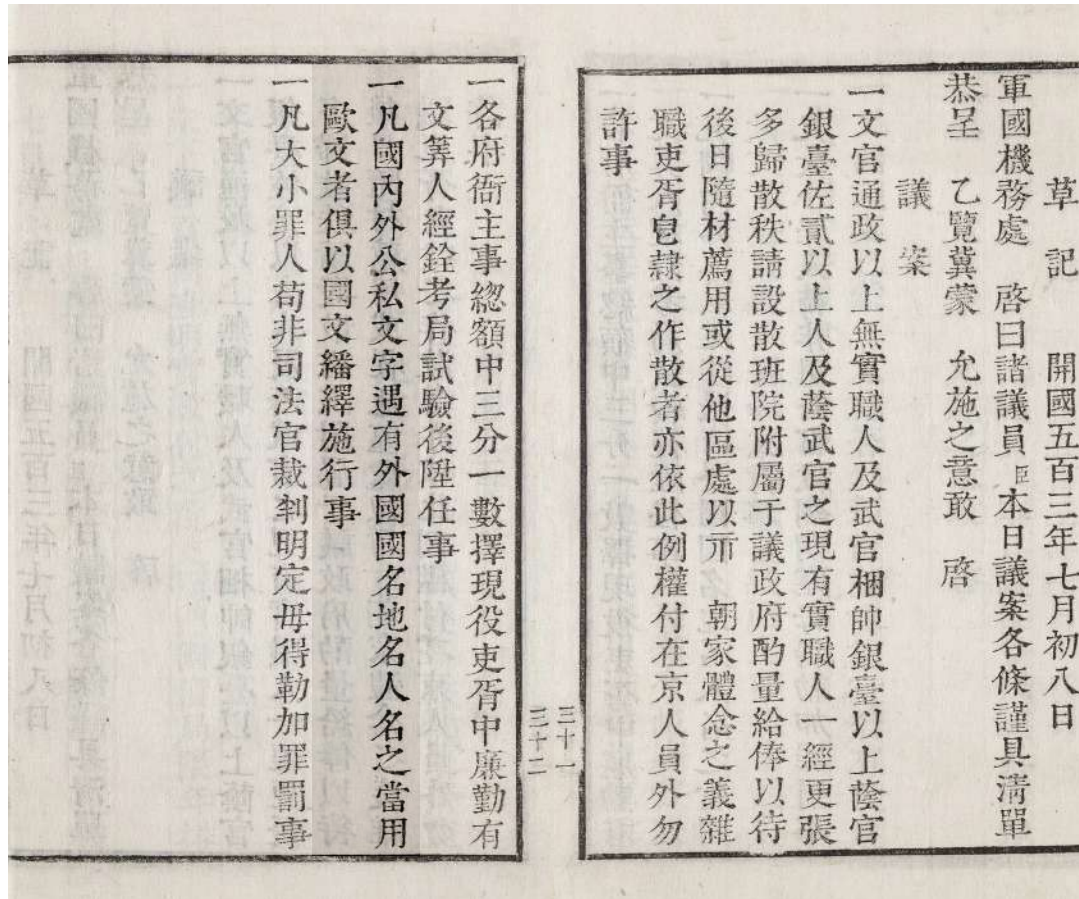 草記 開國五百三年七月初八日
軍國機務處 啓曰諸議員臣本日議案各條謹具淸單
恭呈 乙覽冀蒙 允施之意敢 啓
議案
一文官通政以上無實職人及武官梱帥銀臺以上蔭官
銀臺佐貳以上人及蔭武官之現有實職人一經更張
多歸散秩請設散班院附屬于議政府酌量給俸以待
後日隨材薦用或從他區處以示 朝家體念之義雜
職吏胥皂隷之作散者亦依此例權付在京人員外勿
許事
三十一
三十二
一各府衙主事總額中三分一數擇現役吏胥中廉勤有
文筭人經銓考局試驗後陞任事
一凡國內外公私文字遇有外國國名地名人名之當用
歐文者俱以國文繙繹施行事
一凡大小罪人苟非司法官裁判明定毋得勒加罪罰事